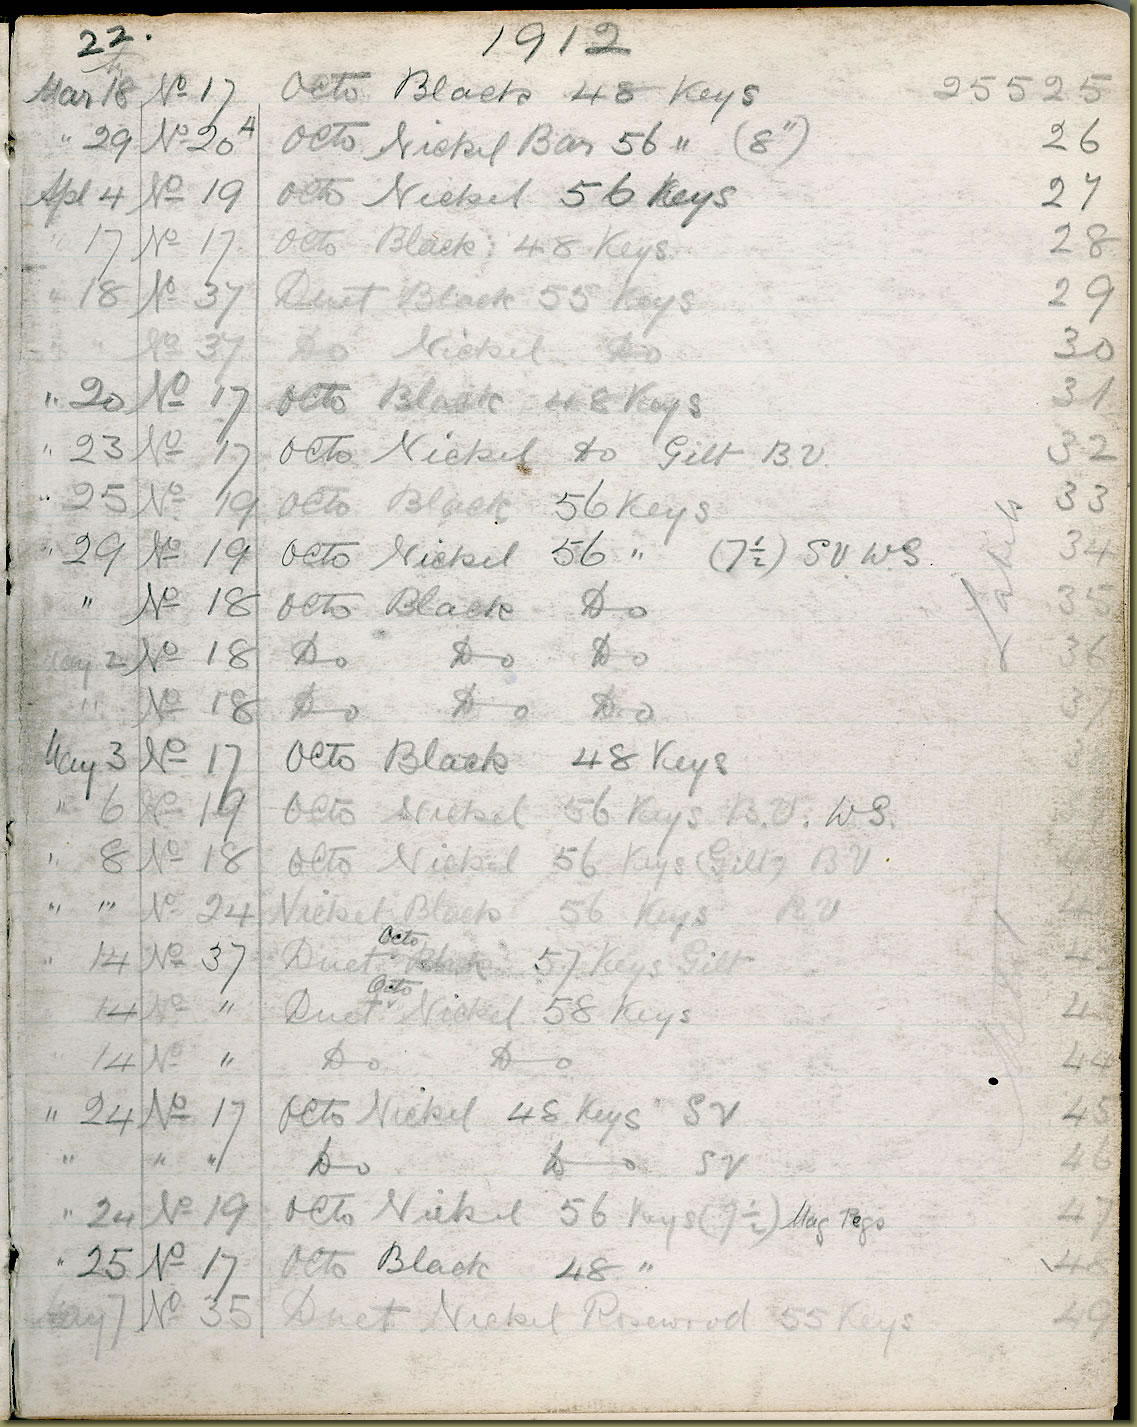 22. 1912
Mar 18 No 17 Octo Black 48 Keys 25525
" 29 No 20A Octo Nickel Bar 56 " (8") 26
Apl 4 No 19 Octo Nickel 56 Keys 27
" 17 No 17 Octo Black 48 Keys 28
" 18 No 37 Duet Black 55 Keys 29
" No 37 Do Nickel Do 30
" 20 No 17 Octo Black 48 Keys 31
" 23 No 17 Octo Nickel Do Gilt B.V. 32
" 25 No 19 Octo Black 56 Keys 33
" 29 No 19 Octo Nickel 56 " (7½) SV. W.S. 34
" No 18 Octo Black Do 35
May 2 No 18 Do Do Do 36
" No 18 Do Do Do 37
May 3 No 17 Octo Black 48 Keys 3
" 6 No 19 Octo Nickel 56 Keys B.V. W.S.
" 8 No 18 Octo Nickel 56 Keys (Gilt) BV 4
" " No 24 Nickel Black 56 Keys BV 4
" 14 No 37 Duet Octo Black 57 Keys Gilt 4
14 No " Duet Octo Nickel 58 Keys 4
14 No " Do Do 44
" 24 No 17 Octo Nickel 48 Keys SV 45
" " " Do Do SV 46
" 24 No 19 Octo Nickel 56 Keys (7½) Mag Pegs 47
" 25 No 17 Octo Black 48 " 48
May 7 No 35 Duet Nickel Rosewood 55 Keys 49